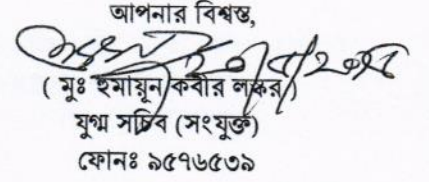 আপনার বিশ্বস্ত,
২০/৫/২০১৮
( মুঃ হুমায়ূন কবীর লস্কর )
যুগ্ম সচিব (সংযুক্ত)
ফোনঃ ৯৫৭৬৫৩৯